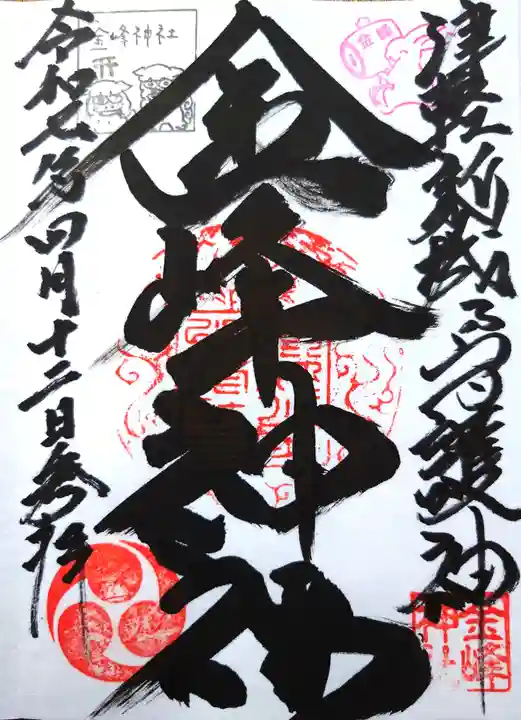 津軽新城乃守護神
金峰神社
令和七年四月十二日参拝
金峰神社
金峰
金峰神社